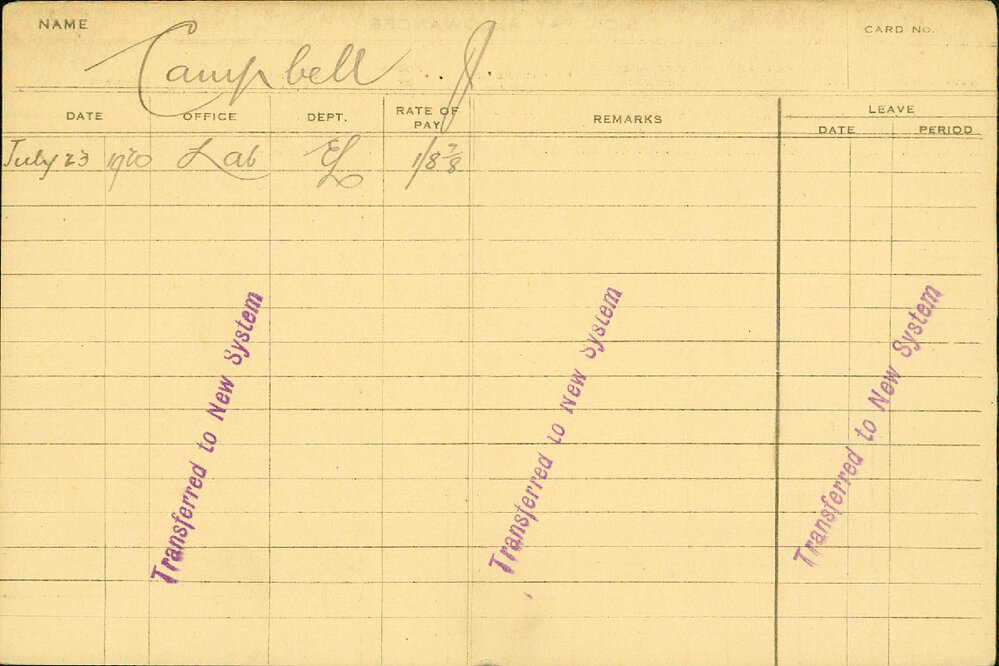 NAME Campbell . . J. CARD No.
DATE OFFICE DEPT. RATE OF PAY REMARKS LEAVE
DATE PERIOD
July 23 1920 Lab EL 1/8 7/8
Transferred to New System
Transferred to New System
Transferred to New System